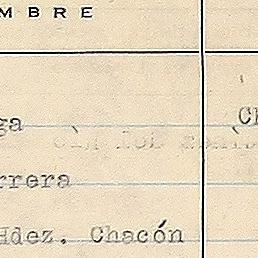 MBRE
ga Ch
rrera
Hdez. Chacón